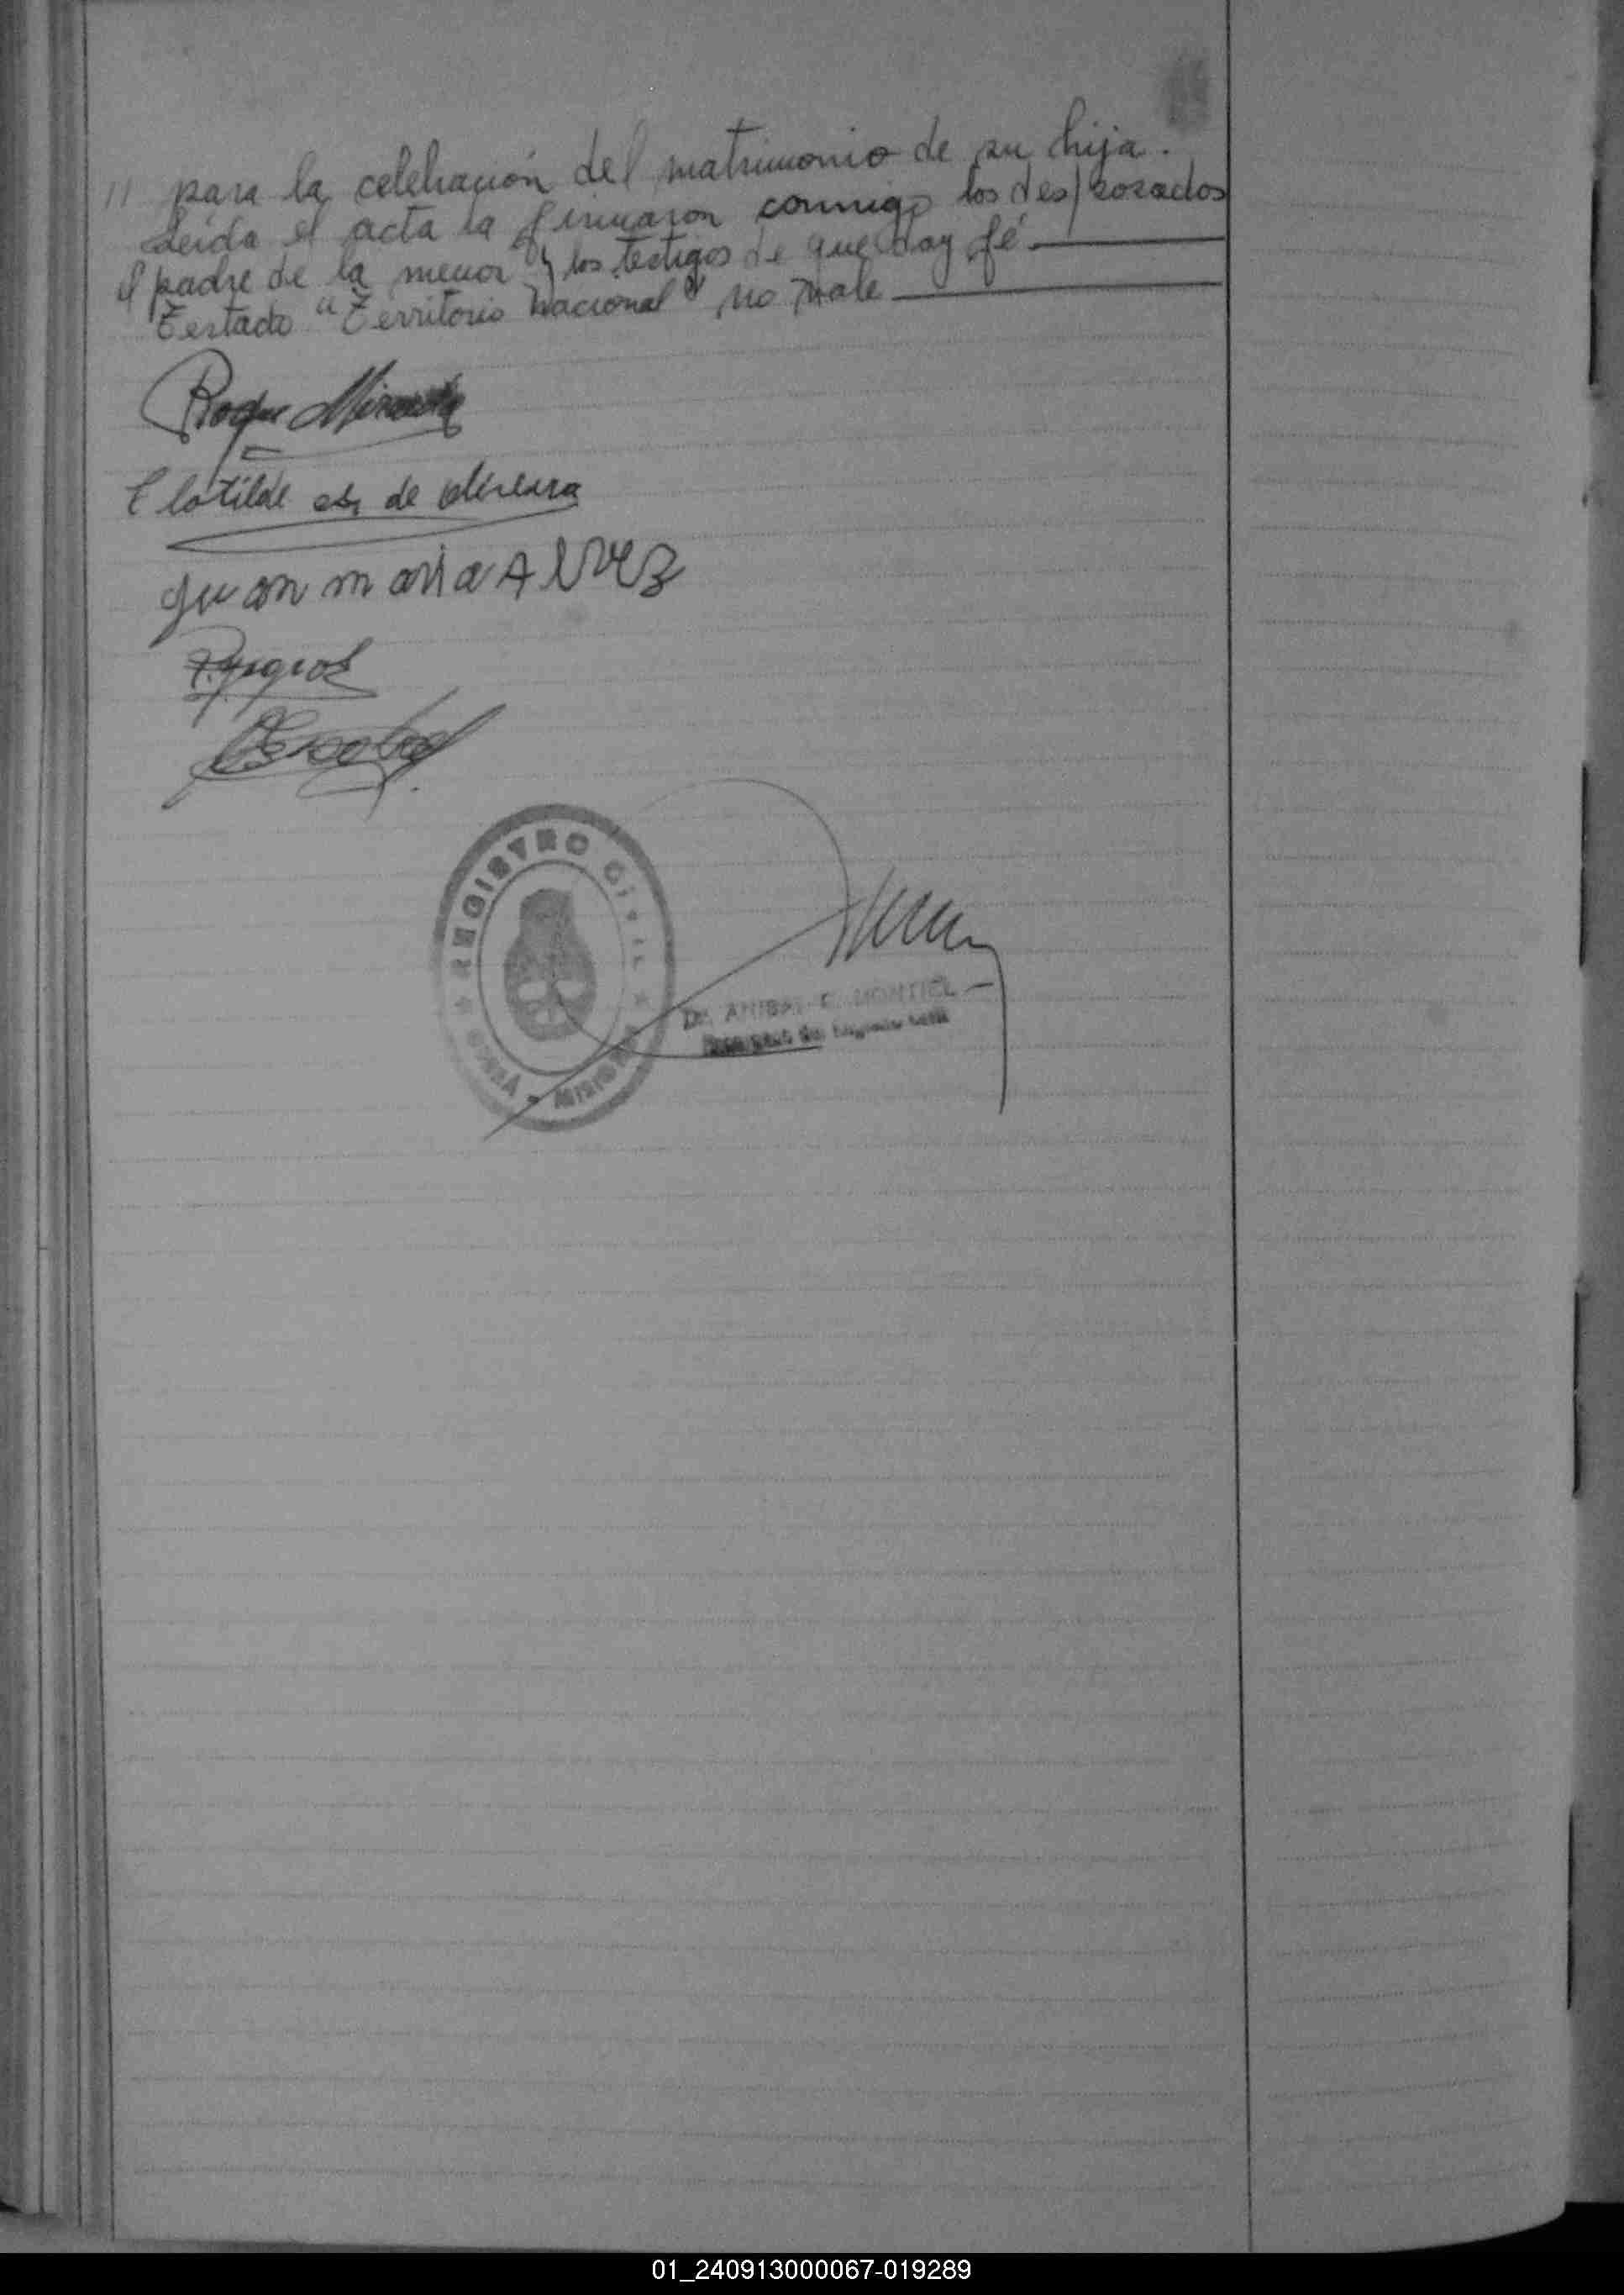 // para la celebración del matrimonio de su hija.
Leída el acta la firmaron conmigo los desposados
el padre de la menor y los testigos de que doy fé
Testado "Territorio Nacional" no vale
Roque Miranda
Clotilde de
Juan maria Alvez
REGISTRO CIVIL
MISIONES
Dr. ANIBAL E. MONTIEL
01_240913000067-019289